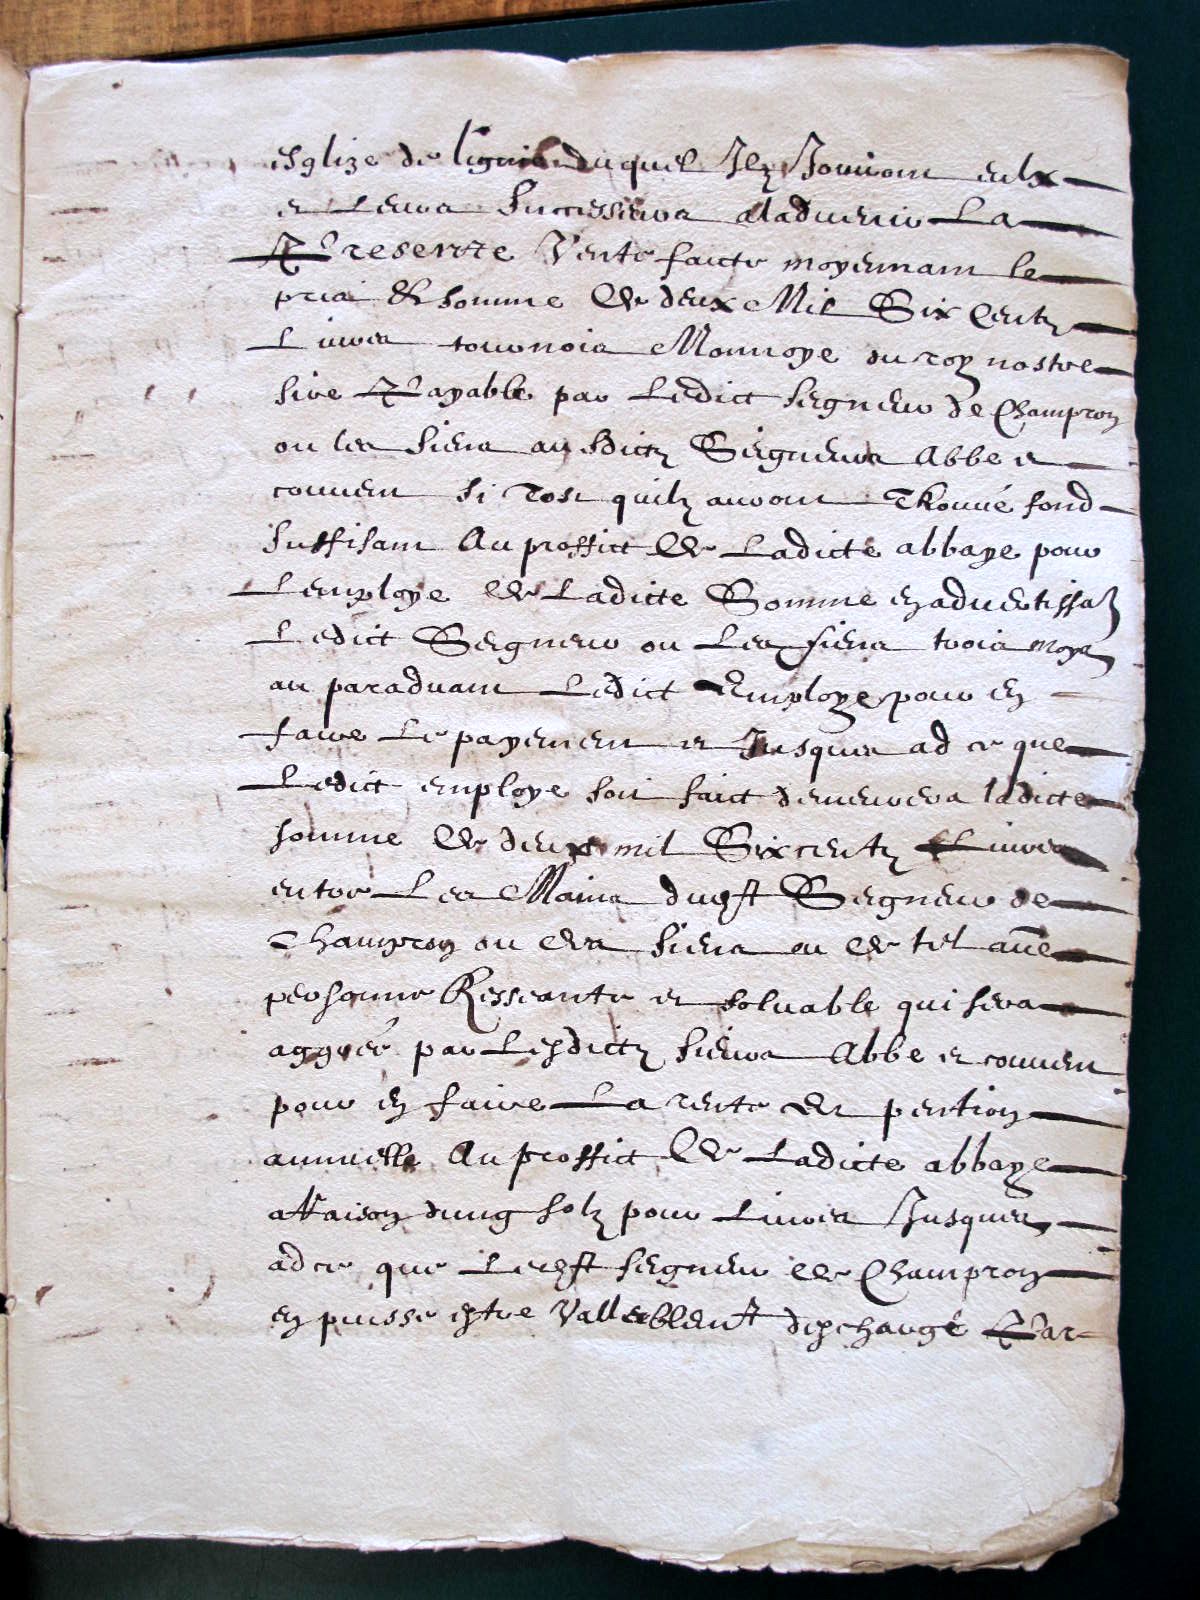 esglize de lignie duquel Ilz Jouiront eulx
et Leurs Successeurs aladuenir La
Presente Vente faicte moyennant le
prix & somme de deux Mil Six Centz
Liures tournois Monnoye du roy nostre
sire Payable par Ledict seigneur de Champron
ou les siens ausdictz Seigneurs Abbe et
couuent si tost quilz auront Trouué fond
suffisant Au proffict de Ladicte abbaye pour
Lemploye de Ladicte Somme en aduertissant
Ledict Seigneur ou Les siens trois moys
au paraduant Ledict Employe pour en
faire Le payement et Jusques ad ce que
Ledict employe soit faict demeurera ladicte
somme de deux mil Six centz Liures
entre Les Mains dudt Seigneur de
Champron ou des siens ou de tel aue
personne Resseante et soluable qui sera
aggréé par Lesdictz sieurs Abbe et couuent
pour en faire La rente Et pention
annuelle Au proffict de Ladicte abbaye
a Raison dung solz pour Liures Jusques
ad ce que Ledt seigneur de Champron
en puisse estre Vallablemt deschargé Par